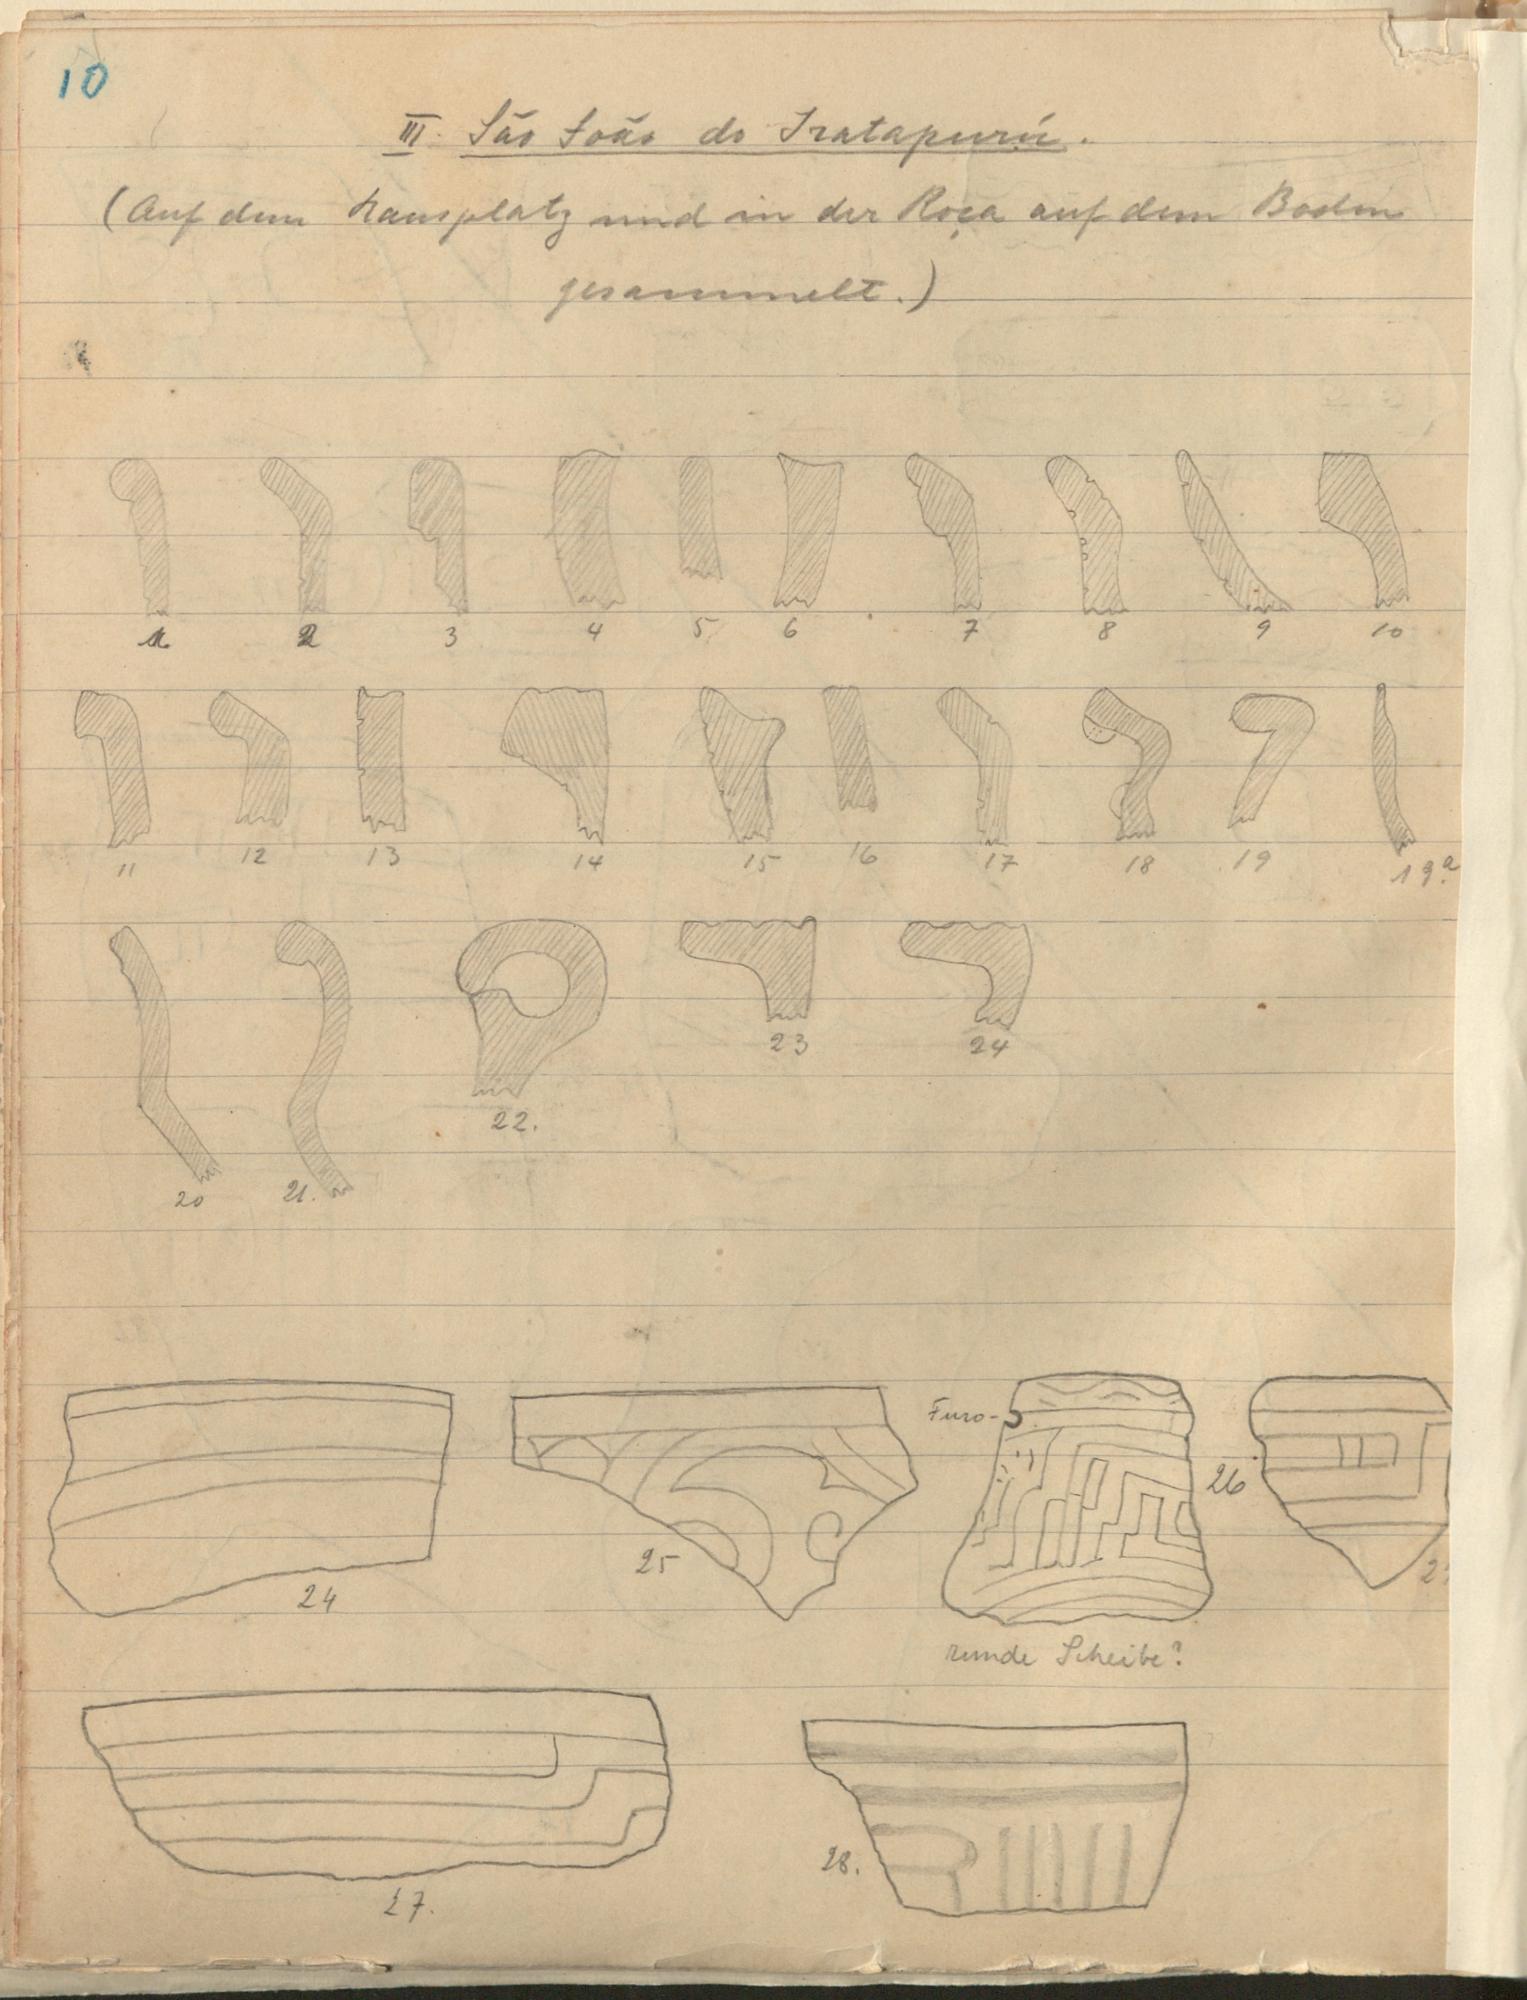 10
III. São João do Iratapurú.
(Auf dem Hausplatz und in der Roça auf dem Boden
gesammelt.)
1 2 3 4 5 6 7 8 9 10
11 12 13 14 15 16 17 18 19 19a
20 21. 22. 23 24
Furo-
24 25 26
runde Scheibe?
27. 28.